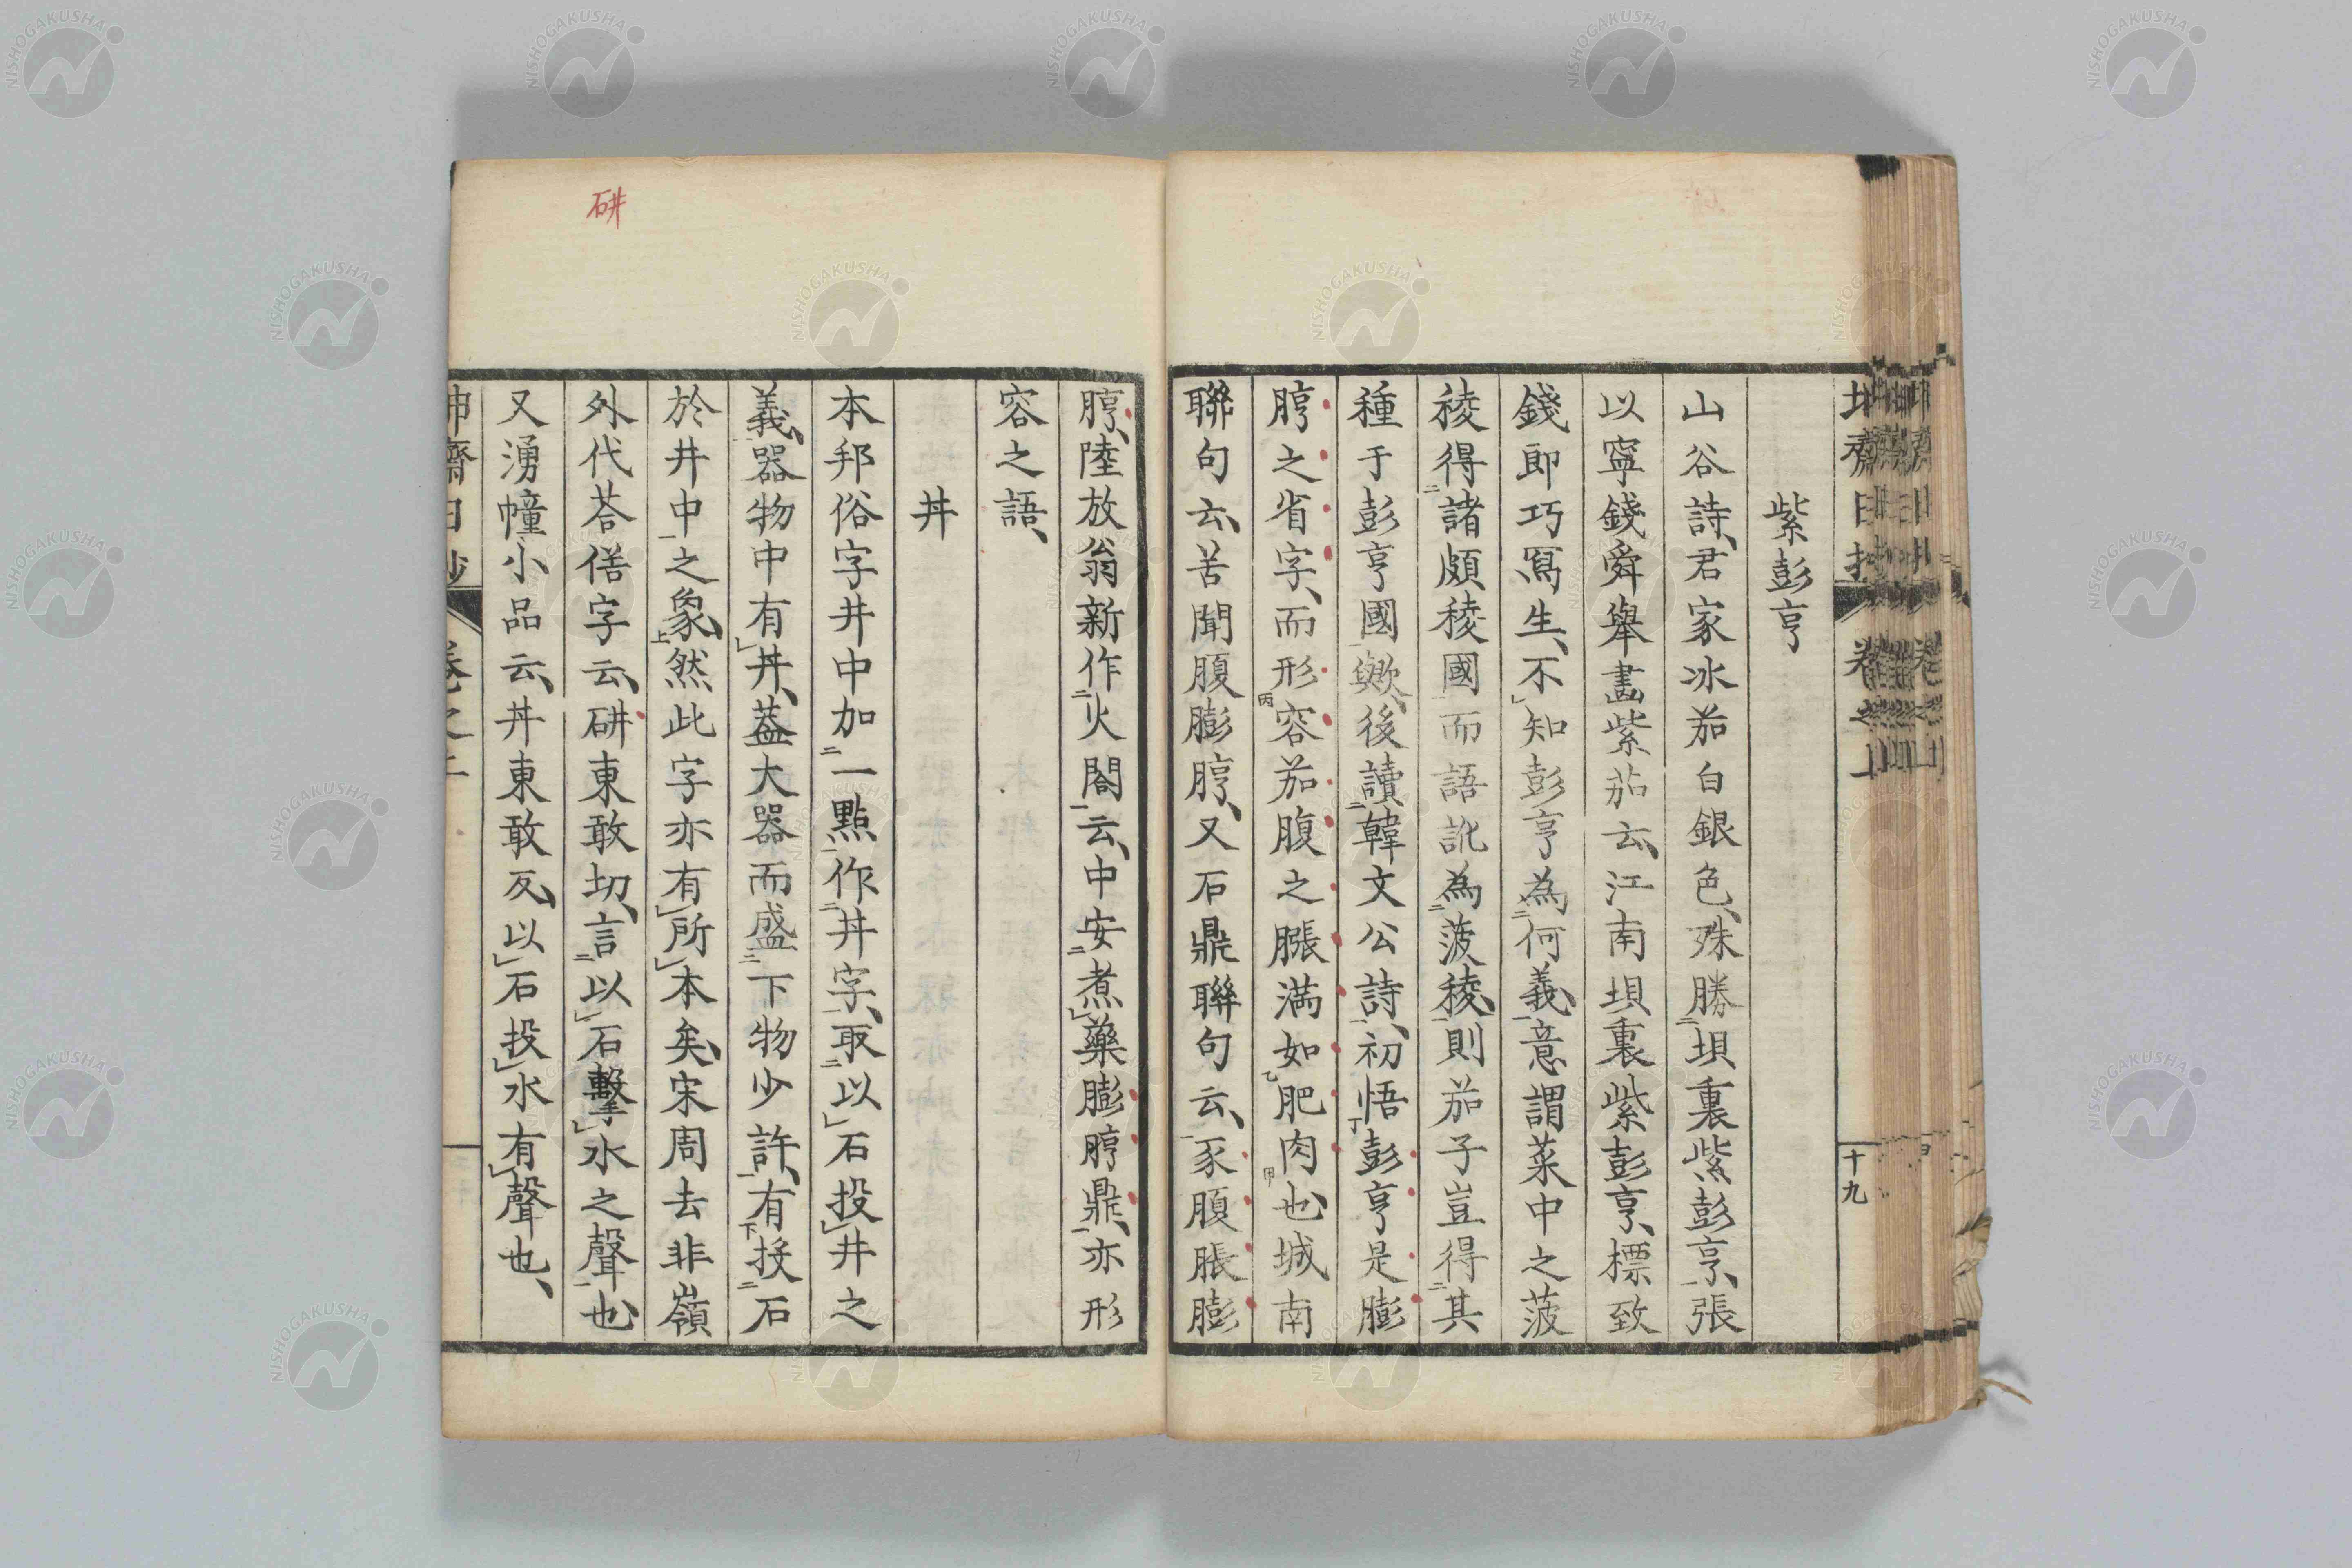 紫彭亨
山谷詩、君家冰茄白銀色、殊勝二坝裏紫彭亨一、張
以寧錢舜舉畫紫茄云、江南坝裏紫彭亨、標致
錢即巧寫生、不レ知彭亨為二何義一、意謂菜中之菠
稜得二諸頗稜國一而語訛為二菠稜一、則茄子豈得二其
種于彭亨國一歟、後讀二韓文公詩一、初悟丁彭亨是膨
脝之省字、而形丙容茄腹之脹満如乙肥肉甲也、城南
聯句云、苦開腹膨脝、又石鼎聯句云、豕腹脹膨
脝、陸放翁新作二火閣一云、中安二煮レ藥膨脝鼎一、亦形
容之語、
丼
本邦俗字井中加二一點一作二丼字一、取二以レ石投レ井之
義一、器物中有レ丼、蓋大器而盛二下物少許一、有下投二石
於井中一之象上、然此字亦有レ所レ本矣、宋周去非嶺
外代荅俗字云、硑東敢切、言二以レ石擊レ水之聲一也、
又湧幢小品云、丼東敢反、以レ石投レ水有レ聲也、
十九
NISHOGAKUSHA